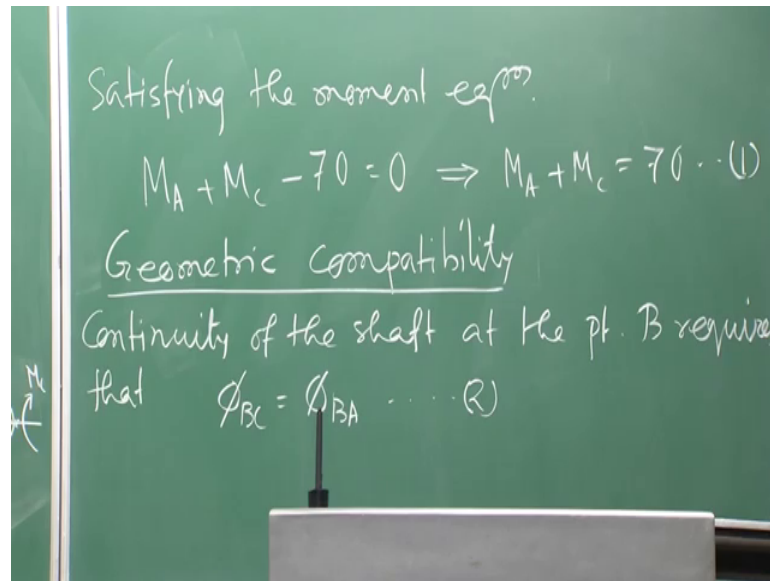 Satisfying the moment eqⁿˢ.
M_A + M_C - 70 = 0 ⇒ M_A + M_C = 70 .. (1)
Geometric compatibility
Continuity of the shaft at the pt. B require
that ϕ_BC = ϕ_BA ..... (2)
M_C